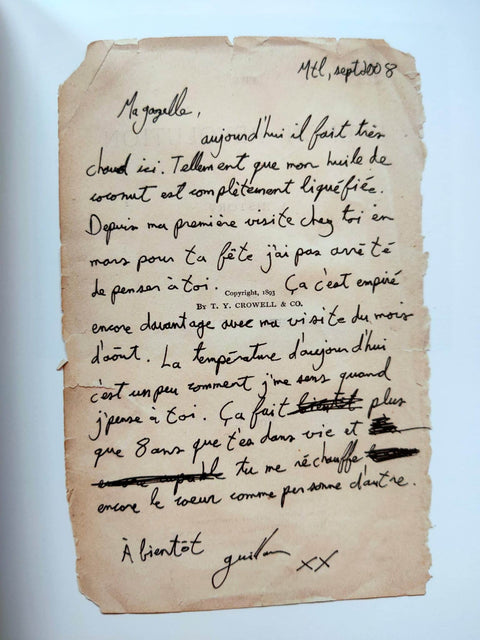 Mtl, sept 2008
Ma gazelle,
aujourd'hui il fait très
chaud ici. Tellement que mon huile de
coconut est complètement liquéfiée.
Depuis ma première visite chez toi en
mars pour ta fête j'ai pas arrêté
de penser à toi. Ça c'est empiré
Copyright, 1893
By T. Y. CROWELL & CO.
encore davantage avec ma visite du mois
d'août. La température d'aujourd'hui
c'est un peu comment j'me sens quand
j'pense à toi. Ça fait bientôt plus
que 8 ans que t'es dans vie et
tu me réchauffe
encore le coeur comme personne d'autre.
À bientôt
XX